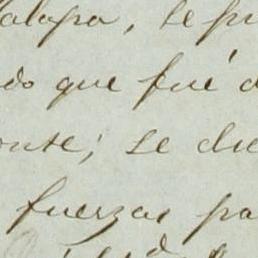 alapa, se pu
do que fué d
onte; se die
fuerzas pa